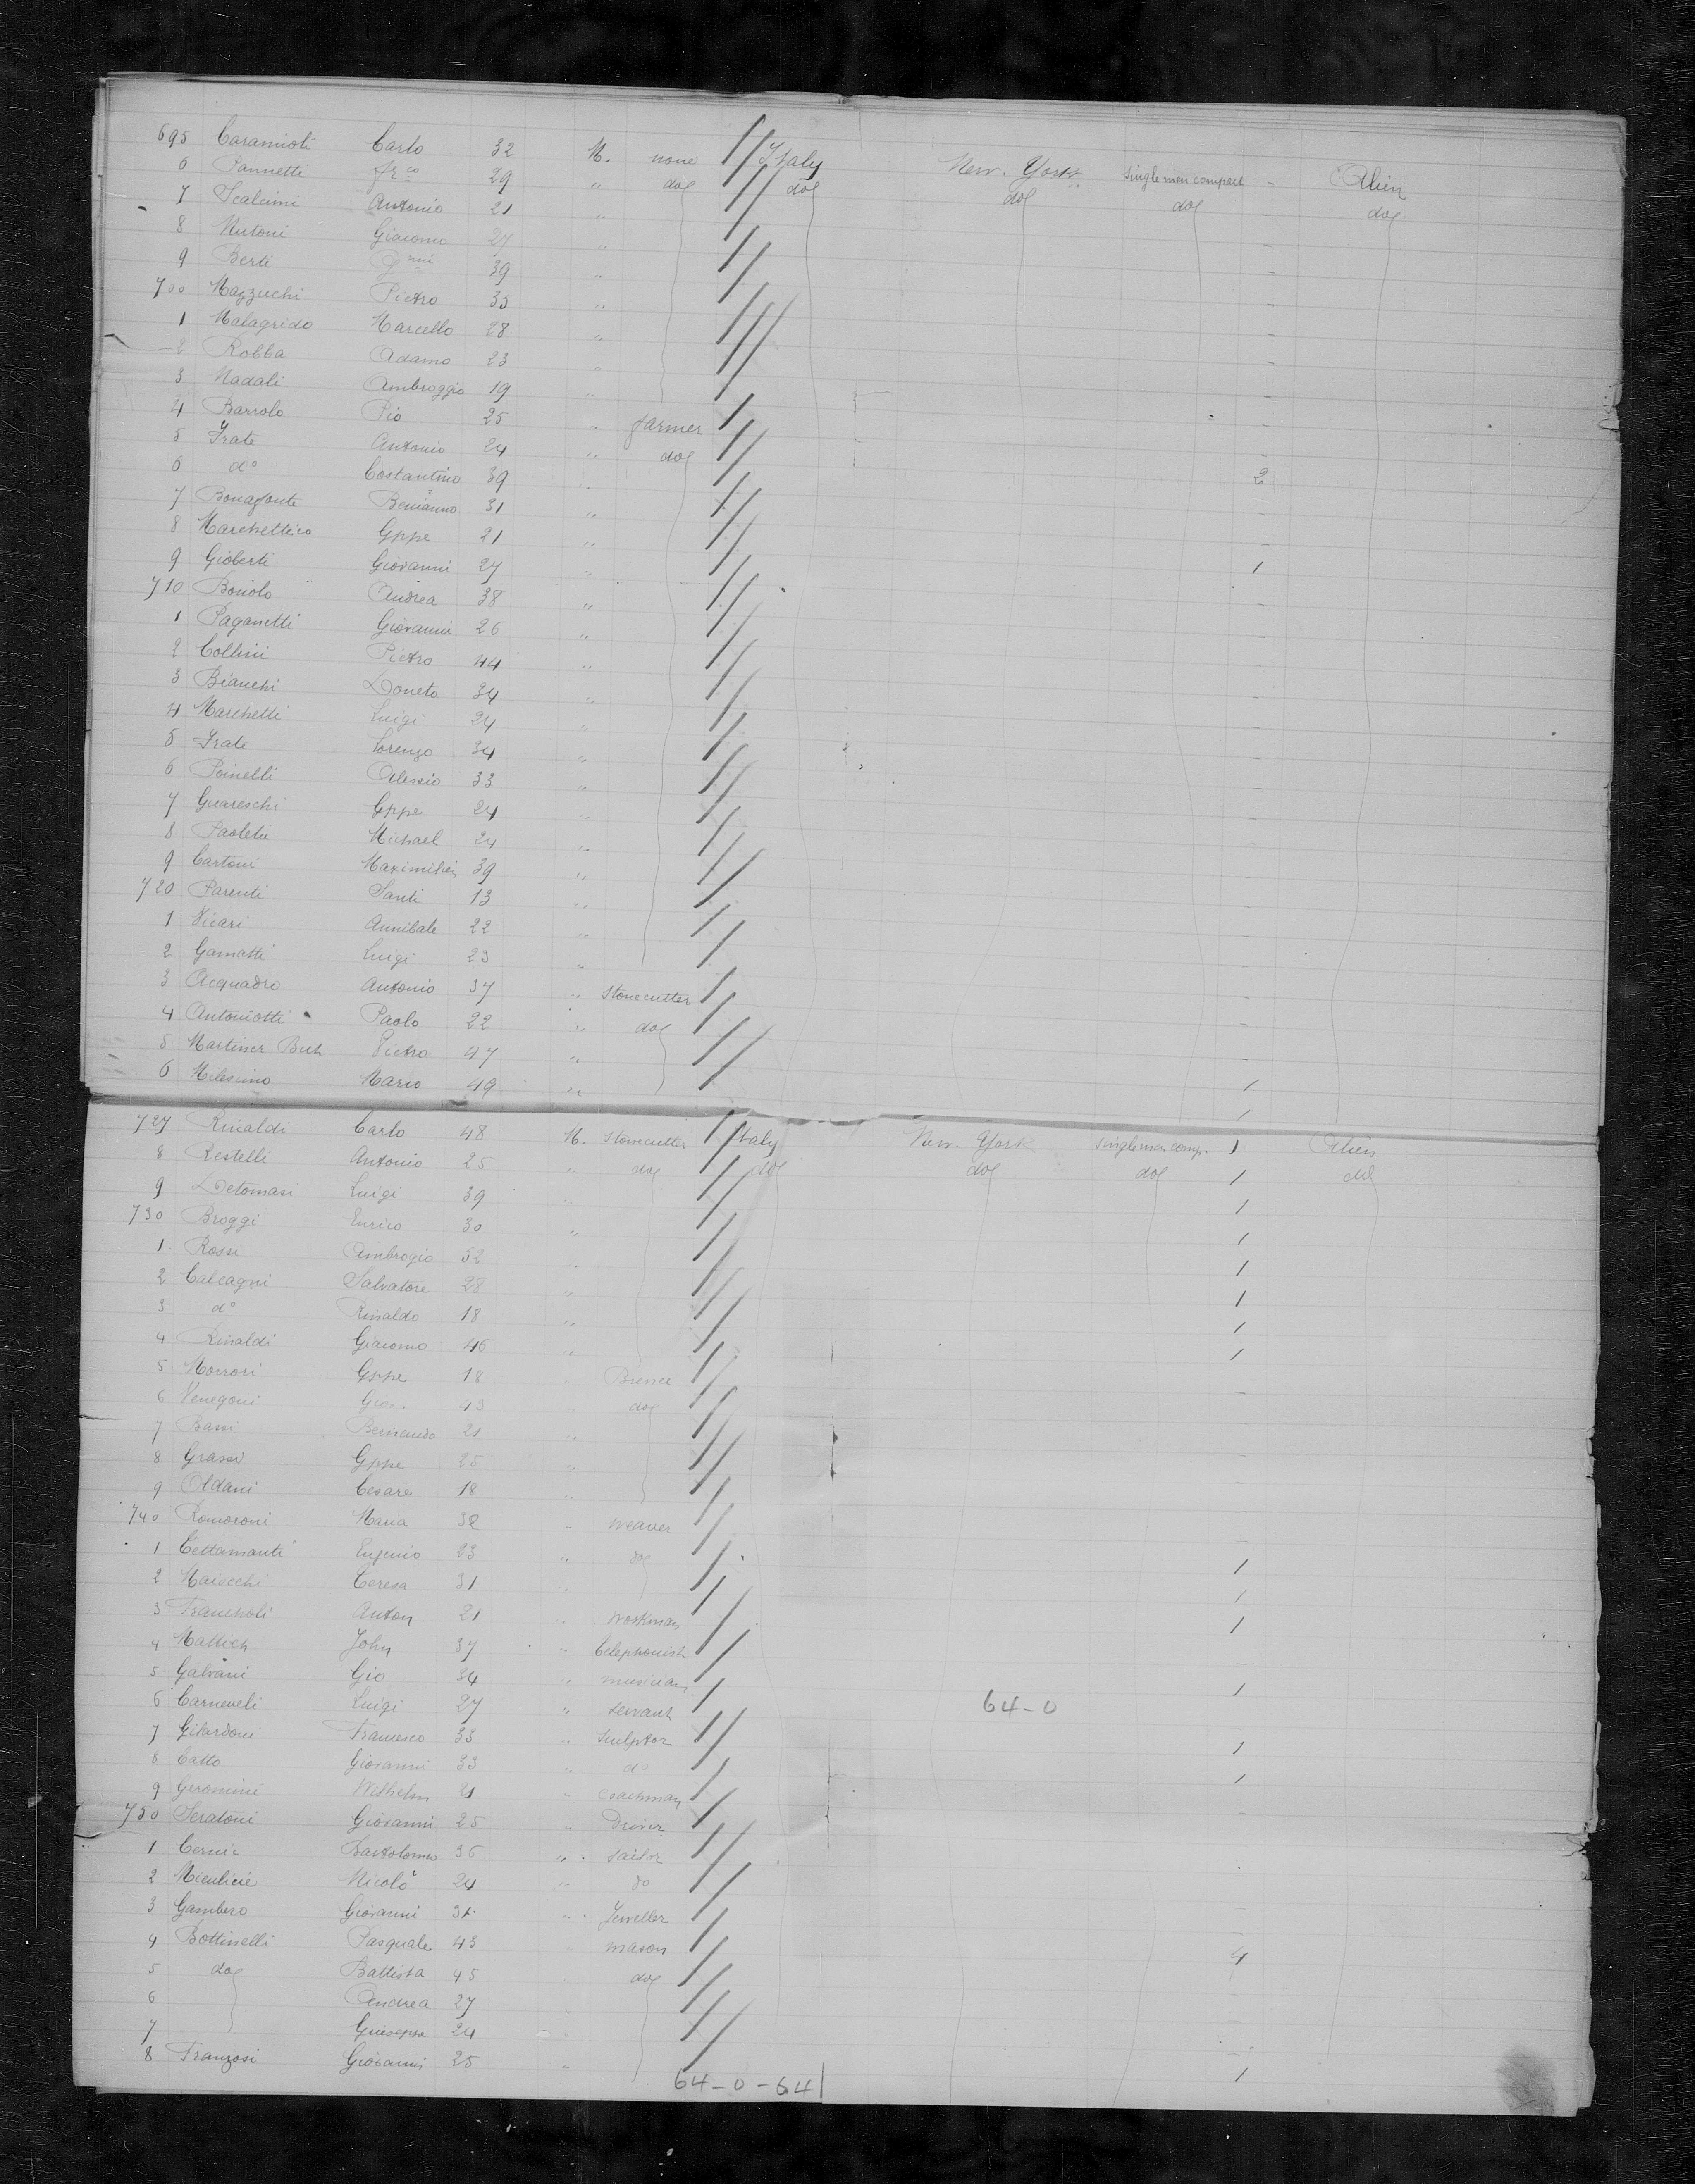 695 Caramisti Carlo 32 M. none Italy New. York singlemen compact - Alien
6 Pannetti frco 29 " do do do do - do
7 Scalcini Antonio 21 "
8 Mutoni Giacomo 27 " -
9 Berti Gnni 39 " -
700 Mazzuchi Pietro 35 " -
1 Malagrido Marcello 28 " -
2 Robba Adamo 23 " -
3 Nadali Ambroggio 19 " -
4 Barrolo Pio 25 " farmer -
5 Frate Antonio 24 " do -
6 do Costantino 39 " 2
7 Bonafonte 31 " -
8 Gppe 21 " -
9 Gioberti Giovanni 27 " 1
710 Bonolo Andrea 38 " -
1 Paganetti Giovanni 26 " -
2 Collini Pietro 44 " -
3 Bianchi Doneto 34 " -
4 Marchetti Luigi 24 " -
5 Frate Lorenzo 34 " -
6 Poinelli Alessio 33 " -
7 Guareschi Gppe 24 " -
8 Michael 24 " -
9 Cartoni 39 " -
720 Parenti Santi 13 " -
1 Vicari Annibale 22 " -
2 Luigi 23 " -
3 Acquadro Antonio 37 " Stonecutter -
4 Antoniotti Paolo 22 " do -
5 Pietro 47 " -
6 Mario 49 " 1
727 Rinaldi Carlo 48 M. Stonecutter Italy New. York singlemen comp. 1 Alien
8 Restelli Antonio 25 " do do do do 1 do
9 Detomasi Luigi 39 1
730 Broggi Enrico 30 " 1
1 Rossi Ambrogio 52 " 1
2 Calcagni Salvatore 28 " 1
3 do Rinaldo 18 " 1
4 Rinaldi Giacomo 46 " 1
5 Gppe 18 -
6 Venegoni Giov. 43 do -
7 Bassi Bernardo 21 " -
8 Grassi Gppe 25 " -
9 Oldani Cesare 18 -
740 Romoroni Maria 32 " weaver -
1 Cettamanti Eugenio 23 " do 1
2 Maiocchi Teresa 31 " 1
3 Francholi Anton 21 " workman 1
4 Mattich John 37 " telephonist -
5 Galvani Gio 34 " musician 1
6 Carneveli Luigi 27 " servant 64-0
7 Gilardoni Francesco 33 " Sculptor 1
8 Catto Giovanni 33 " do 1
9 Geromini Wilhelm 21 " coachman -
750 Seratoni Giovanni 25 " Driver
1 Bartolomeo 36 " sailor
2 Nicolò 24 " do
3 Gambero Giovanni 31 " Jeweller -
4 Bottinelli Pasquale 43 " mason 4
5 do Battista 45 do
6 Andrea 27
7 Guiseppe 24
8 Franzosi Giovanni 25 " 1
64-0-64